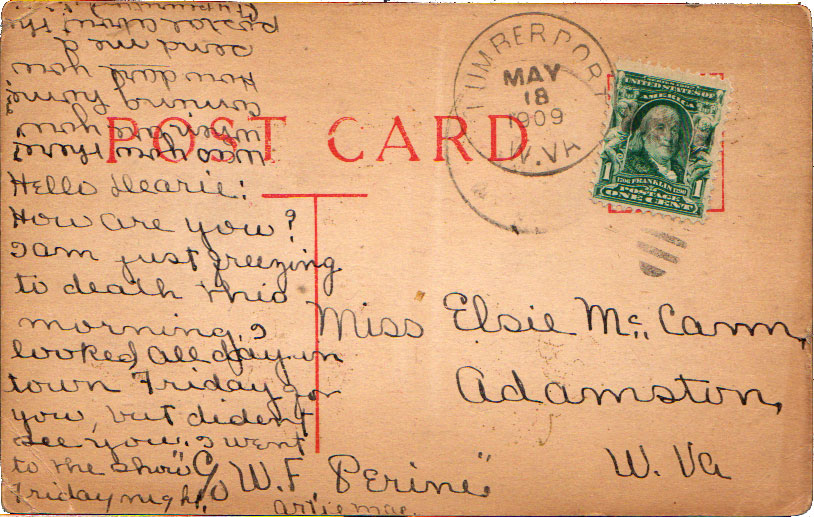 POST CARD
LUMBERPORT
MAY
18
1909
W.VA.
UNITED STATES OF
AMERICA
1706 FRANKLIN 1790
1 POSTAGE 1
ONE CENT
Hello Dearie:
How are you?
I am just freezing
to death this
morning. I
looked all day in
town Friday for
you, but dident
see you. I went
to the show
Friday night,
was you there?
When are you
coming home?
How dast you
send me a
postal about the
Miss Elsie McCann,
Adamston,
W. Va
"c/o W.F. Perine"
artie mae.